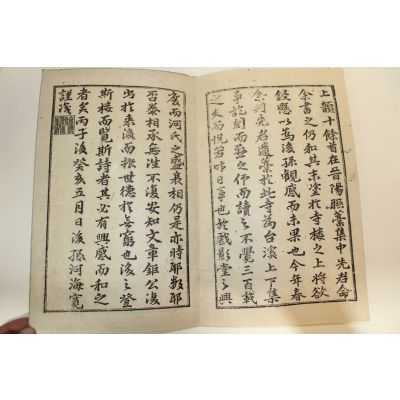 上韻十條首在晉陽聯藁集中先君命
余書之仍和其末堂於寺樓之上將欲
鋟懸以爲後孫觀感而未果也今年春
余刻先君遺藁於此寺爲台溪上下集
事訖刻而並之而讀之不覺三百載
之而怳若昨日事也於戲影堂之興
廢而河氏之盛衰相仍是亦時耶數耶
否泰相承無往不復安知文章鉅公復
出於來後而世德於無窮也後之登
斯樓而覽斯詩者其必有興感而和之
者矣丙子後癸亥五月日後孫河海寬
謹識